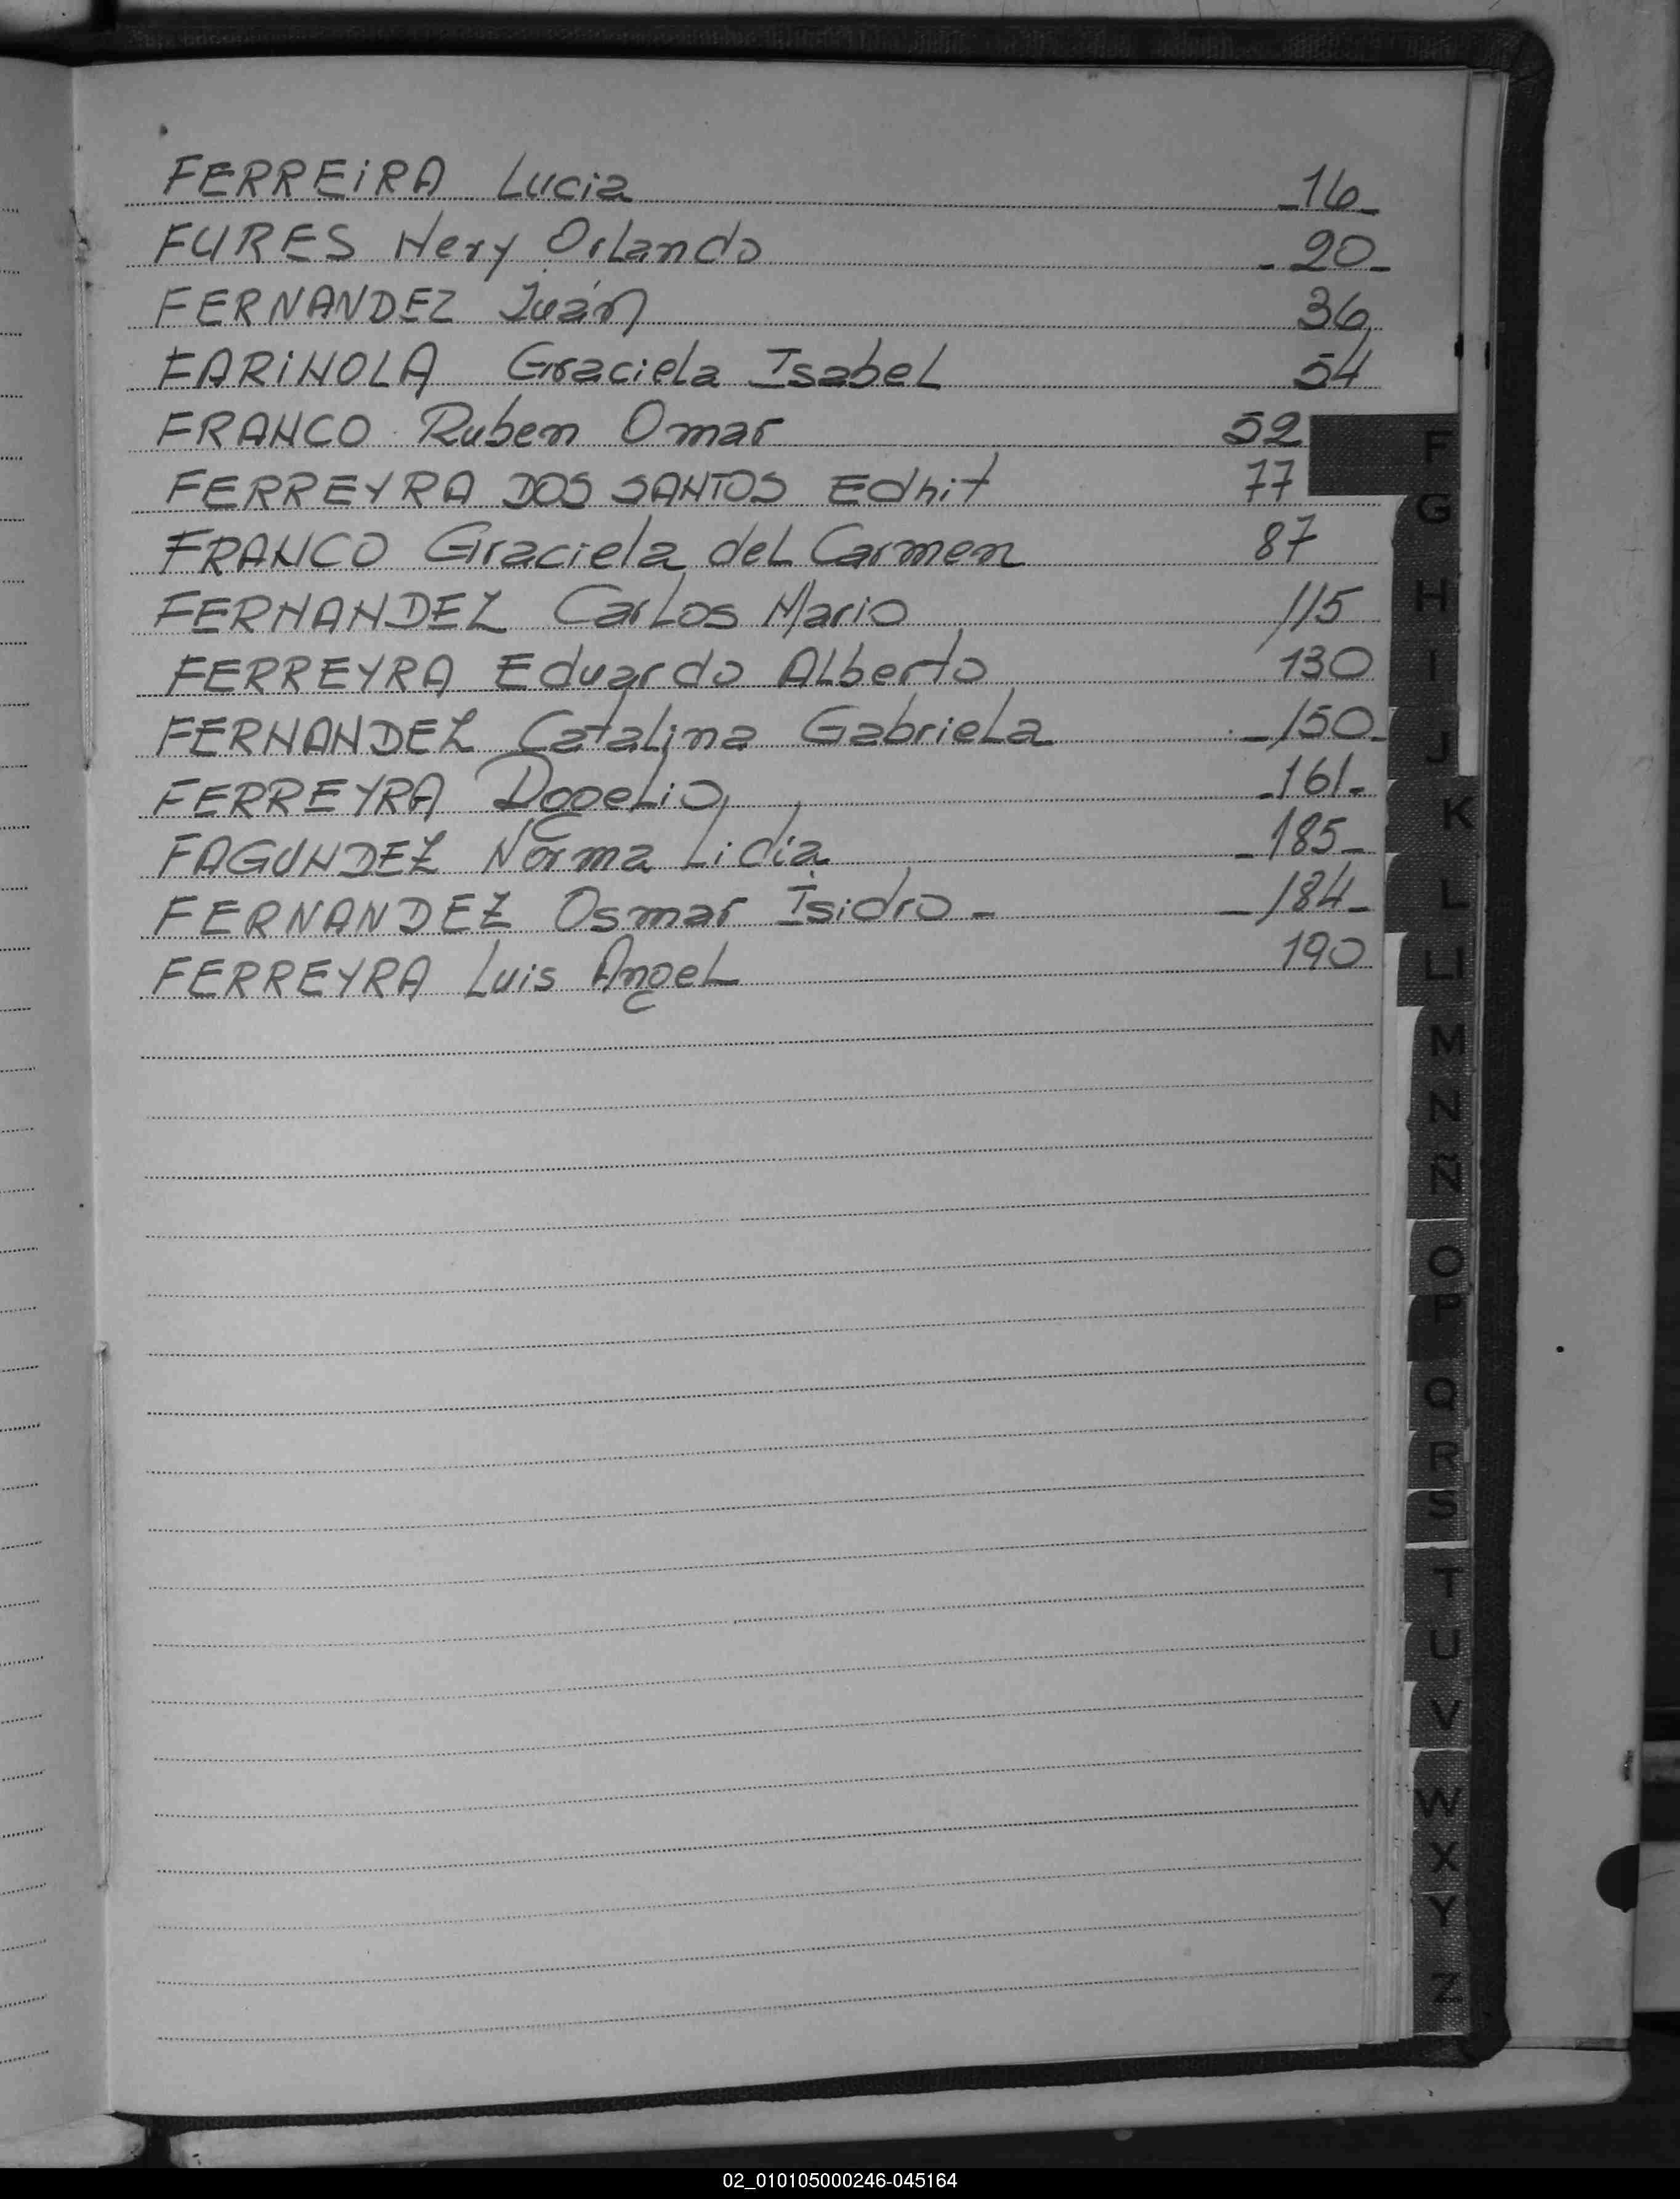 FERREiRA Lucia _16_
FURES Nery Orlando - 20_
FERNANDEZ Iván 36
FARiNOLA Graciela Isabel 54
FRANCO Ruben Omar 52
FERREYRA DOS SANTOS Edhit 77
FRANCO Graciela del Carmen 87
FERNANDEZ Carlos Mario 115
FERREYRA Eduardo Alberto 130
FERNANDEZ Catalina Gabriela _150_
FERREYRA 161-
FAGUNDEZ Norma Lidia _185_
FERNANDEZ Osmar Isidro - _184_
FERREYRA Luis Angel 190
F
G
H
I
J
K
L
Ll
M
N
Ñ
O
P
Q
R
S
T
U
V
W
X
Y
Z
02_010105000246-045164